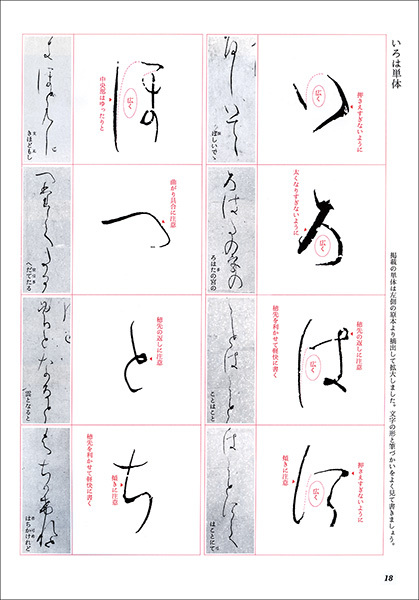 いろは単体
掲載の単体は左側の原本より摘出して拡大しました。文字の形と筆づかいをよく見て書きましょう。
い
押さえすぎないように
広く
ほしいでゝ
ろ
太くなりすぎないように
広く
ろはたの宮の
は
穂先の返しに注意
広く
穂先を利かせて軽快に書く
ことはこと
に
押さえすぎないように
広く
傾きに注意
はことにて
ほ
広く
中央部はゆったりと
きほどもし
へ
曲がり具合に注意
へだてたる
と
穂先の返しに注意
雲となると
ち
傾きに注意
穂先を利かせて軽快に書く
はちかけれど
18